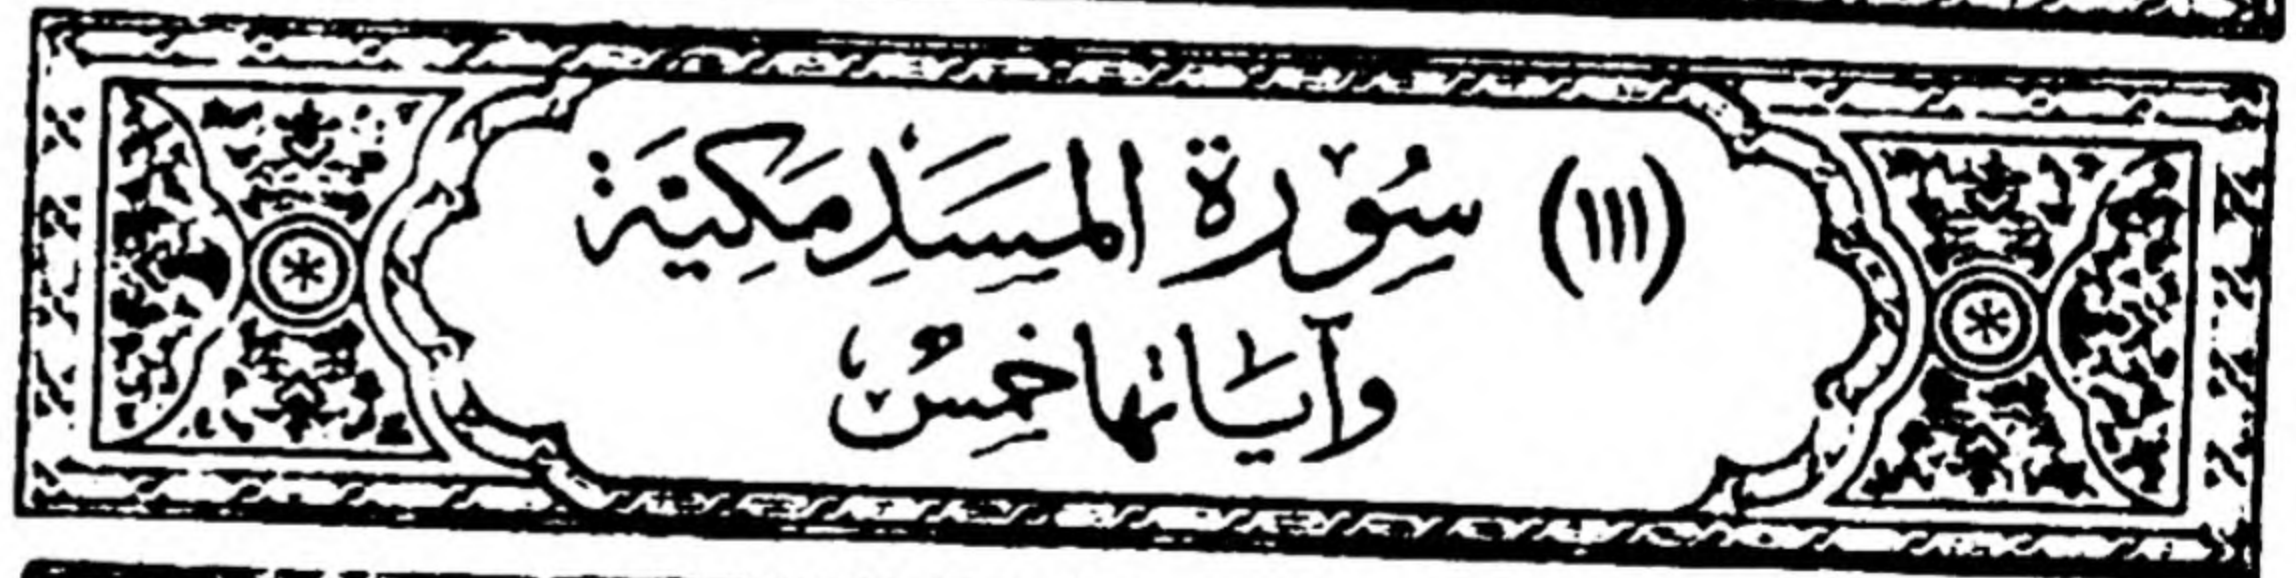 (١١١) سُورة المسَد مَكيّة
وآيَاتها خمسٌ